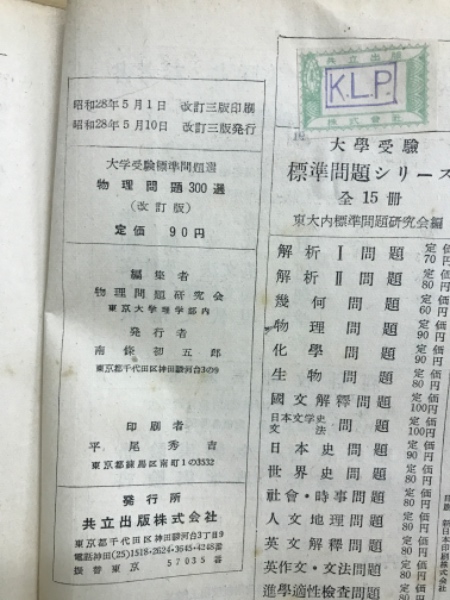 昭和28年5月1日 改訂三版印刷
昭和28年5月10日 改訂三版発行
大学受験標準問題選
物理問題300選
(改訂版)
定価 90円
編集者
物理問題研究会
東京大学理学部内
発行者
南條初五郎
東京都千代田区神田駿河台3の9
印刷者
平尾秀吉
東京都練馬区南町1の3532
発行所
共立出版株式会社
東京都千代田区神田駿河台3丁目9
電話神田(25)1518・2624・3645・4248番
振替東京 57035番
共立出版
K.L.P.
株式会社
大學受驗
標準問題シリーズ
全15冊
東大内標準問題研究会編
解析Ⅰ問題 定価70円
解析Ⅱ問題 定価80円
幾何問題 定価60円
物理問題 定価90円
化學問題 定価90円
生物問題 定価80円
國文解釋問題 定価100円
日本文学史文法問題 定価100円
日本史問題 定価90円
世界史問題 定価80円
社會・時事問題 定価80円
人文地理問題 定価80円
英文解釋問題 定価80円
英作文・文法問題 定価80円
進學適性檢査問題 定価80円
新日本印刷株式会社